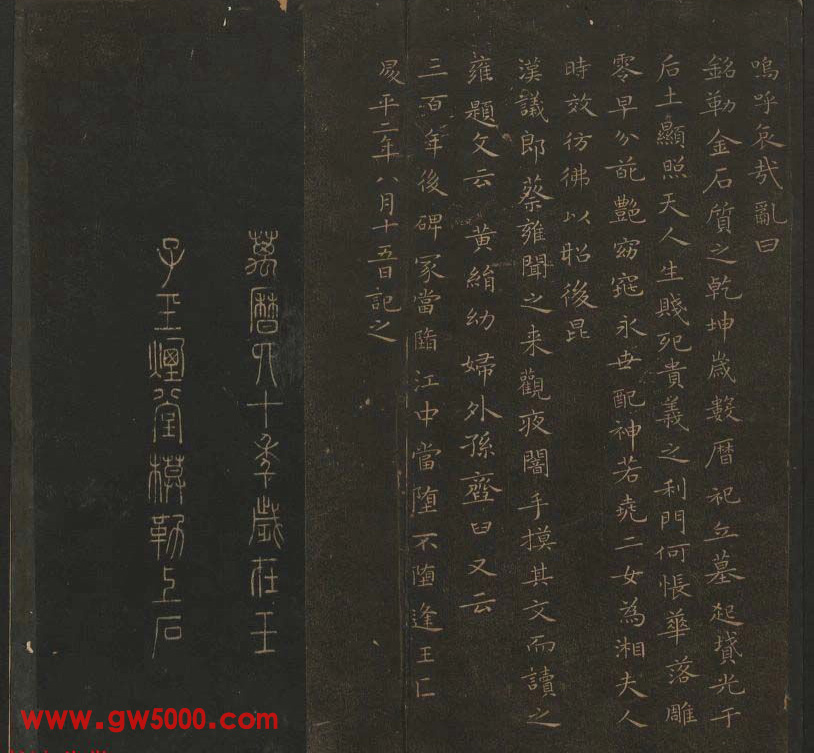 嗚呼哀哉亂曰
銘勒金石質之乾坤歲數曆祀立墓起墳光于
后土顯照天人生賤死貴義之利門何悵華落雕
零早分葩艷窈窕永世配神若堯二女為湘夫人
時效彷彿以昭後昆
漢議郎蔡雍聞之来觀夜闇手摸其文而讀之
雍題文云黃絹幼婦外孫齏臼又云
三百年後碑冢當墮江中當墮不墮逢王叵
昇平二年八月十五日記之
萬曆四十年歲在壬
子王煙堂模勒上石
www.gw5000.com